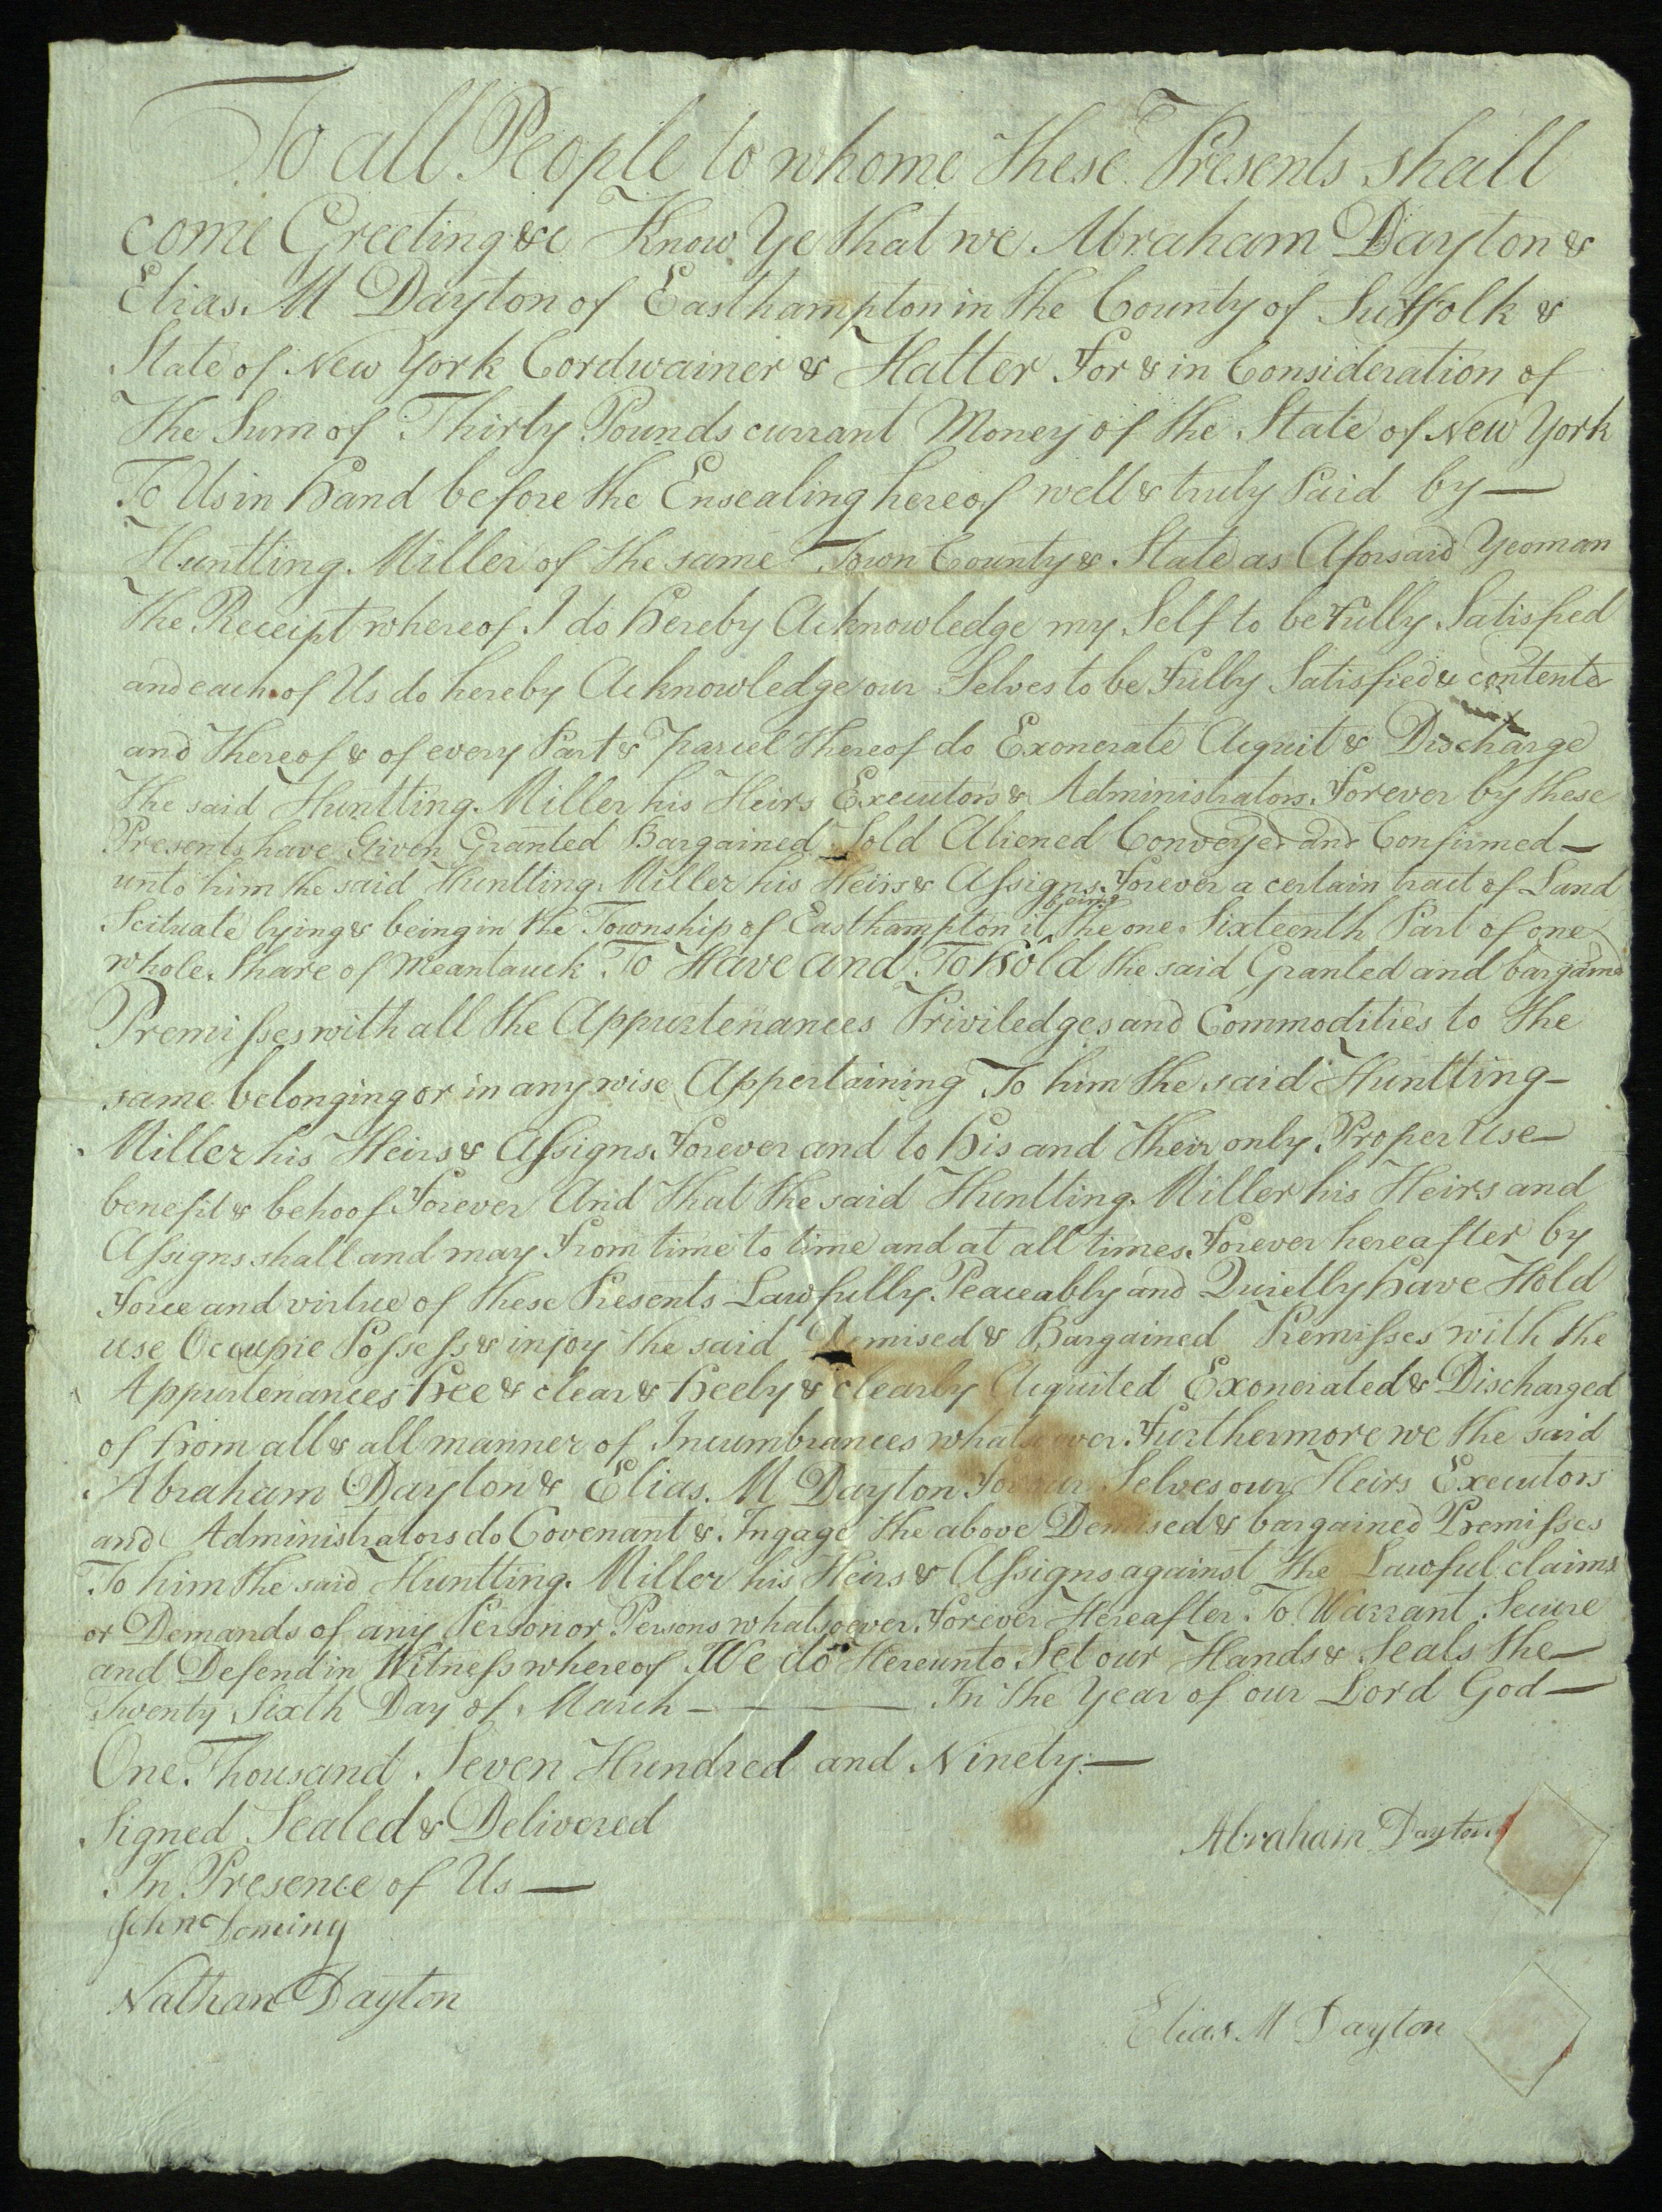 To all People to whome these Presents shall
come Greeting &c Know Ye that we Abraham Dayton &
Elias M Dayton of Easthampton in the County of Suffolk &
State of New York Cordwainer & Hatter For & in Consideration of
the Sum of Thirty Pounds currant Money of the State of New York
To Us in hand before the Ensealing hereof well & truly Paid by —
Huntting Miller of the same Town County & State as Aforsaid Yeoman
the Receipt whereof I do hereby Acknowledge my Self to be fully Satisfied
and each of Us do hereby Acknowledge our Selves to be Fully Satisfied & contented
and thereof & of every Part & parcel thereof do Exonerate Acquit & Discharge
the said Huntting Miller his Heirs Executors & Administrators Forever by these
Presents have Given Granted Bargained Sold Aliened Conveyed and Confirmed —
unto him the said Huntting Miller his Heirs & Assigns Forever a certain tract of Land
Scituate lying & being in the Township of Easthampton it being the one Sixteenth Part of one
whole Share of Meantauck To Have and To hold the said Granted and bargaind
Premisses with all the Appurtenances Priviledges and Commodities to the
same belonging or in any wise Appertaining To him the said Huntting —
Miller his Heirs & Assigns Forever and to his and their only Proper Use —
benefit & behoof Forever And that the said Huntting Miller his Heirs and
Assigns shall and may From time to time and at all times Forever hereafter by
Force and virtue of these Presents Lawfully Peaceably and Quietly have Hold
use Occupie Possess & injoy the said Demised & Bargained Premisses with the
Appurtenances free & clear & freely & clearly Acquited Exonerated & Discharged
of from all & all manner of Incumbrances whatsoever Furthermore we the said
Abraham Dayton & Elias M Dayton For our Selves our Heirs Executors
and Administrators do Covenant & Ingage the above Demised & bargained Premisses
To him the said Huntting Miller his Heirs & Assigns against the Lawful claims
or Demands of any Person or Persons whatsoever Forever Hereafter To Warrant Secure
and Defend in Witness whereof We do Hereunto Set our Hands & Seals the —
Twenty Sixth Day of March — In the Year of our Lord God —
One Thousand Seven Hundred and Ninety: —
Signed Sealed & Delivered
In Presence of Us —
Abraham Dayton
John
Nathan Dayton
Elias M Dayton